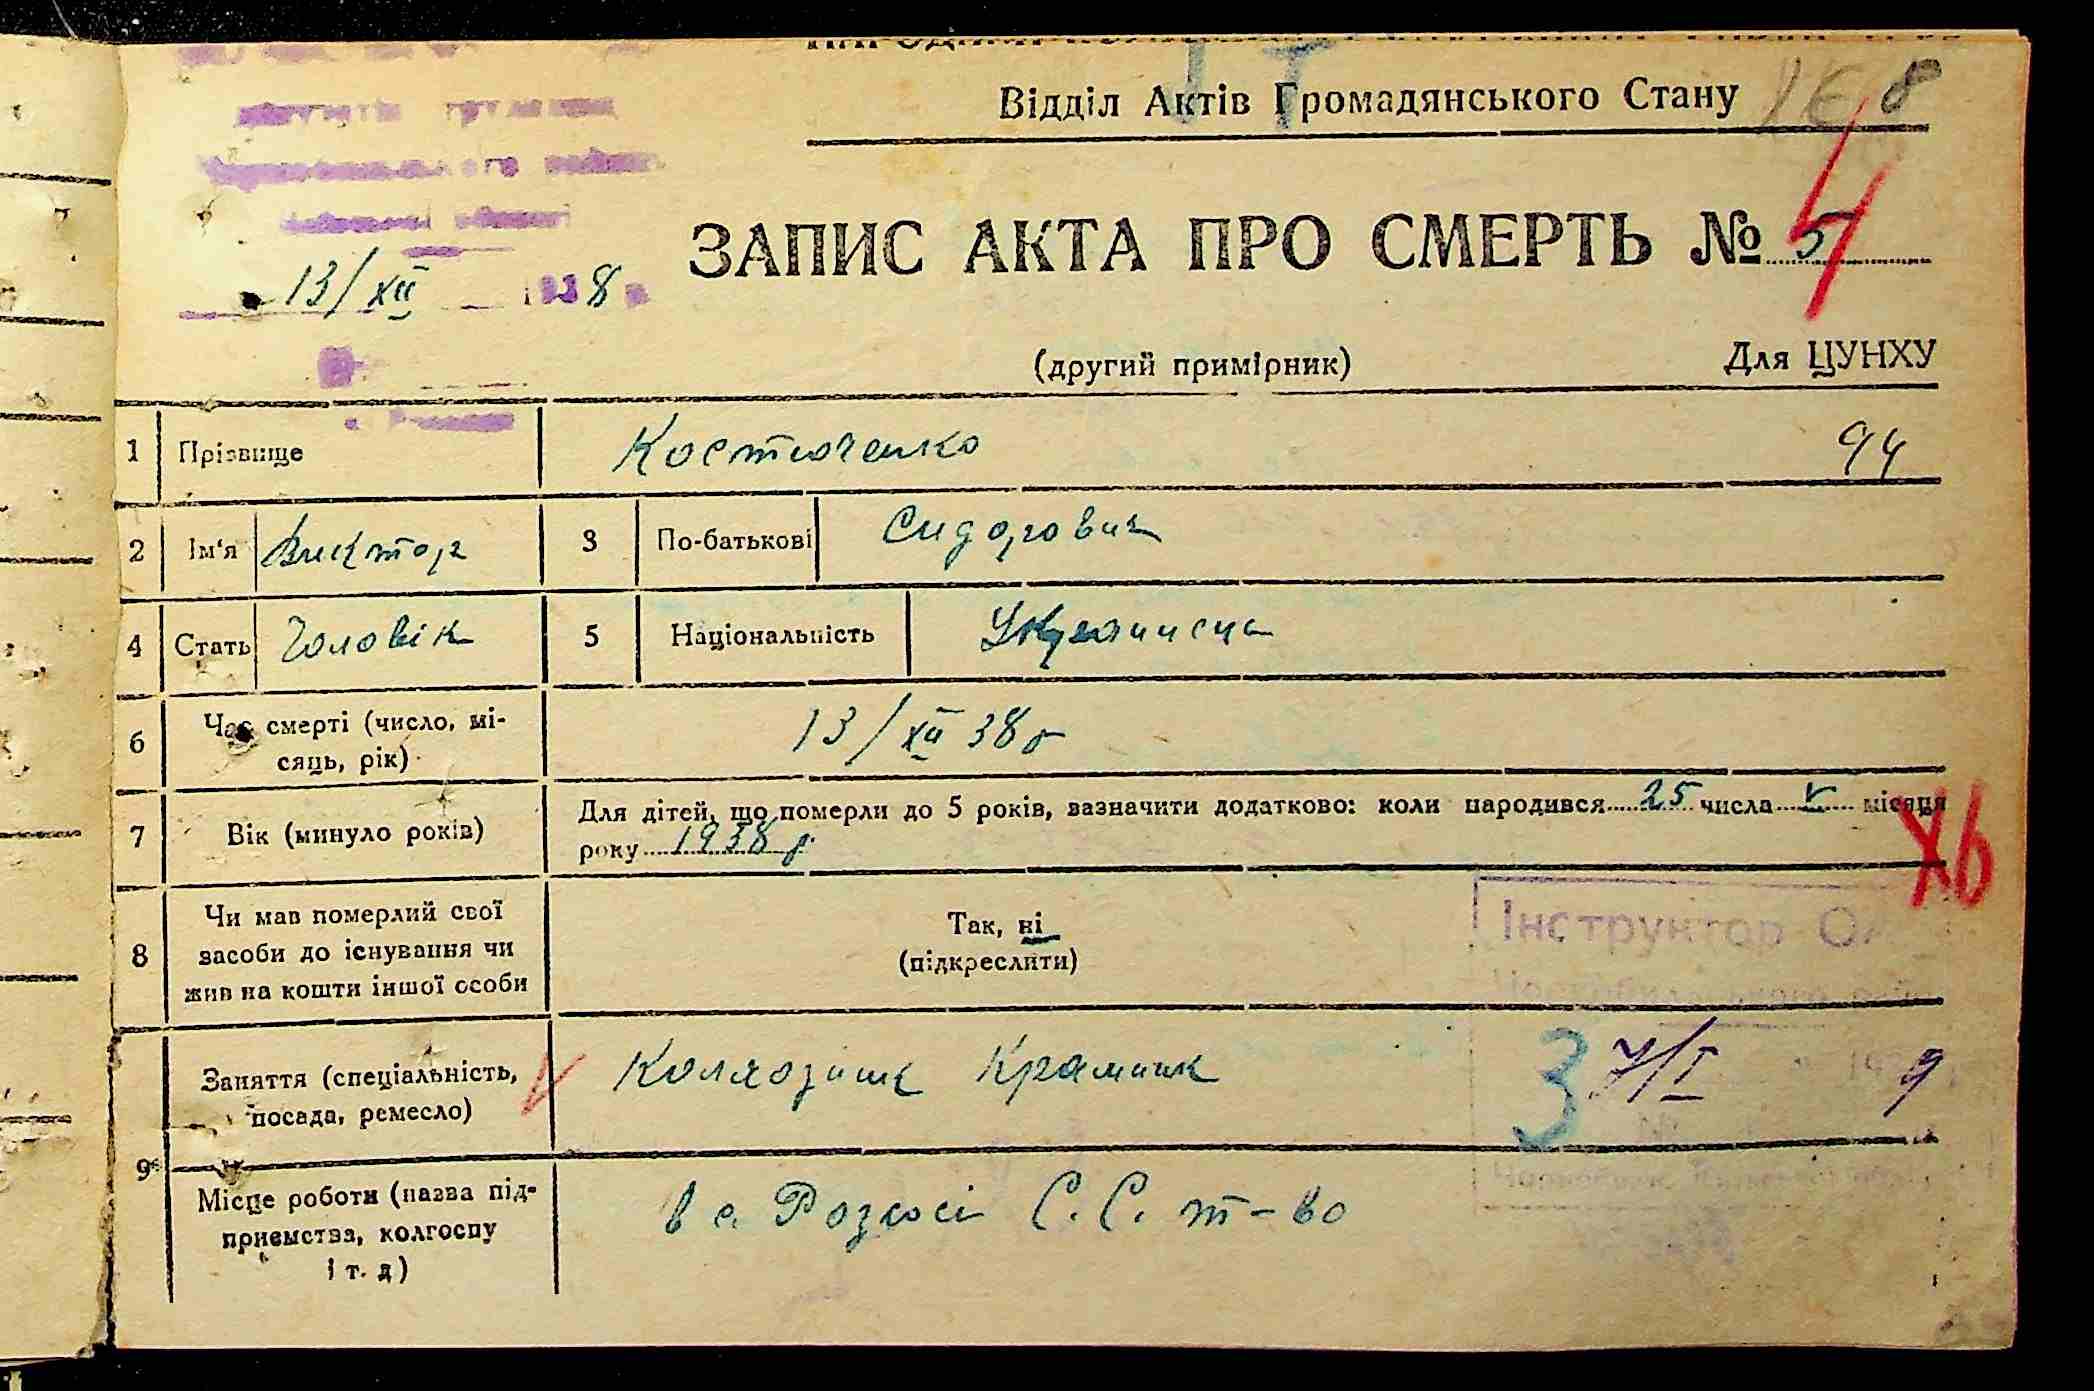 Відділ Актів Громадянського Стану
8
ЗАПИС АКТА ПРО СМЕРТЬ № 5
4
13/XII 1938 р
(другий примірник) Для ЦУНХУ
1 Прізвище Костюченко 94
2 Ім'я Виктор 3 По-батькові Сидорович
4 Стать Чоловік 5 Національність
6 Час смерті (число, мі-
сяць, рік) 13/XII 38 р
7 Вік (минуло років) Для дітей, що померли до 5 років, зазначити додатково: коли народився 25 числа V місяця
року 1938 р.
8 Чи мав померлий свої
засоби до існування чи
жив на кошти іншої особи
Так, ні
(підкреслити)
Інструктор
9 Заняття (спеціальність,
посада, ремесло) Колхозник Крамник
3 7/I 9
Місце роботи (назва під-
приємства, колгоспу
і т. д) в с. С. С. т-во